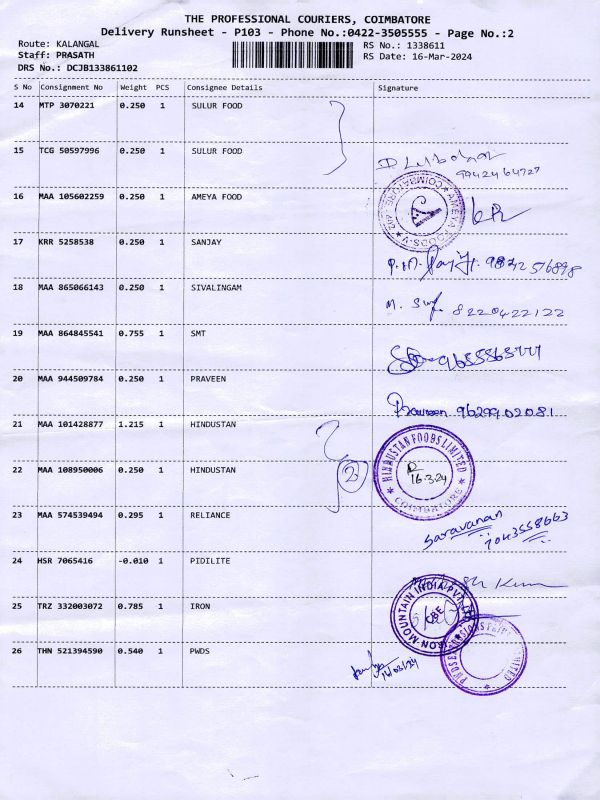 THE PROFESSIONAL COURIERS, COIMBATORE
Delivery Runsheet - P103 - Phone No.:0422-3505555 - Page No.:2
Route: KALANGAL RS No.: 1338611
Staff: PRASATH RS Date: 16-Mar-2024
DRS No.: DCJB133861102
S No Consignment No Weight PCS Consignee Details Signature
14 MTP 3070221 0.250 1 SULUR FOOD
15 TCG 50597996 0.250 1 SULUR FOOD
9942464727
16 MAA 105602259 0.250 1 AMEYA FOOD
AMEYA FOODS COIMBATORE
17 KRR 5258538 0.250 1 SANJAY
9842576898
18 MAA 865066143 0.250 1 SIVALINGAM
8220422122
19 MAA 864845541 0.755 1 SMT
20 MAA 944509784 0.250 1 PRAVEEN
Praveen 9629902081
21 MAA 101428877 1.215 1 HINDUSTAN
HINDUSTAN FOODS LIMITED COIMBATORE
16.3.24
22 MAA 108950006 0.250 1 HINDUSTAN
2
23 MAA 574539494 0.295 1 RELIANCE
Saravanan
24 HSR 7065416 -0.010 1 PIDILITE
Kumar
25 TRZ 332003072 0.785 1 IRON
IRON MOUNTAIN INDIA PVT LTD CBE
26 THN 521394590 0.540 1 PWDS
16/03/24